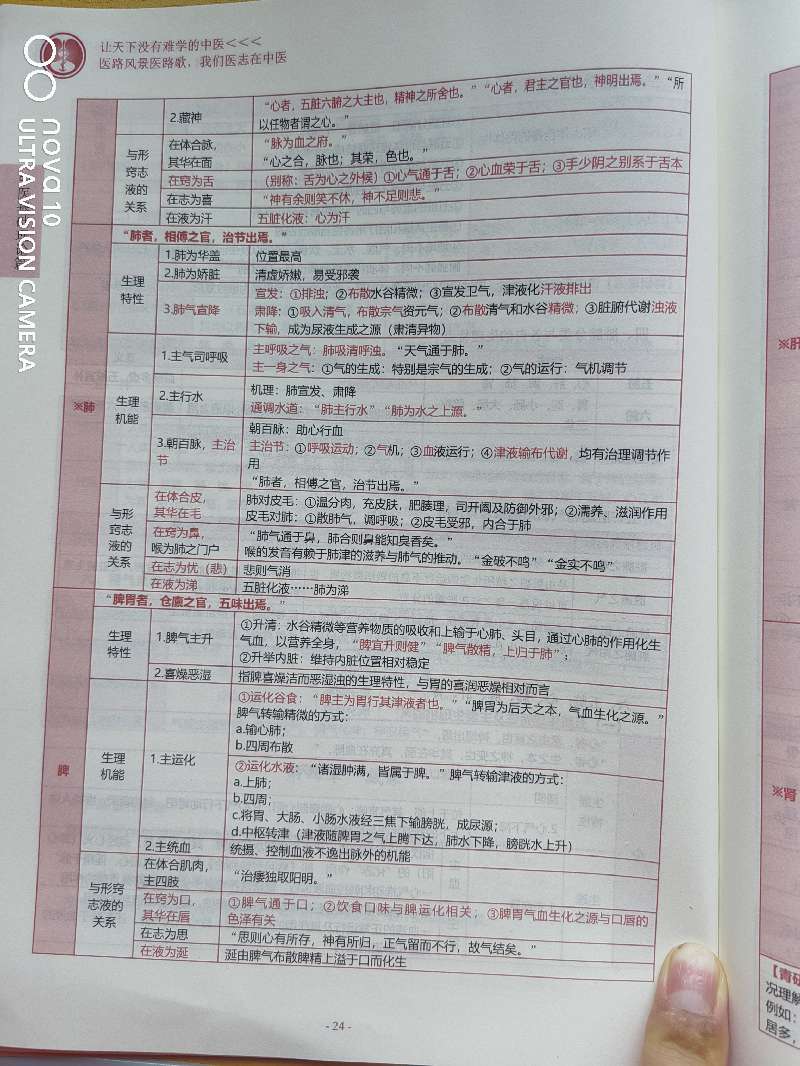 让天下没有难学的中医<<<
医路风景医路歌，我们医志在中医
nova 10
ULTRA VISION CAMERA
2.藏神
“心者，五脏六腑之大主也，精神之所舍也。”“心者，君主之官也，神明出焉。”“所
以任物者谓之心。”
与形
窍志
液的
关系
在体合脉，
其华在面
“脉为血之府。”
“心之合，脉也；其荣，色也。”
在窍为舌
（别称：舌为心之外候）①心气通于舌；②心血荣于舌；③手少阴之别系于舌本
在志为喜
“神有余则笑不休，神不足则悲。”
在液为汗
五脏化液：心为汗
※肺
“肺者，相傅之官，治节出焉。”
生理
特性
1.肺为华盖
位置最高
2.肺为娇脏
清虚娇嫩，易受邪袭
3.肺气宣降
宣发：①排浊；②布散水谷精微；③宣发卫气，津液化汗液排出
肃降：①吸入清气，布散宗气资元气；②布散清气和水谷精微；③脏腑代谢浊液
下输，成为尿液生成之源（肃清异物）
生理
机能
1.主气司呼吸
主呼吸之气：肺吸清呼浊。“天气通于肺。”
主一身之气：①气的生成：特别是宗气的生成；②气的运行：气机调节
2.主行水
机理：肺宣发、肃降
通调水道：“肺主行水”“肺为水之上源。”
3.朝百脉，主治
节
朝百脉：助心行血
主治节：①呼吸运动；②气机；③血液运行；④津液输布代谢，均有治理调节作
用
“肺者，相傅之官，治节出焉。”
与形
窍志
液的
关系
在体合皮，
其华在毛
肺对皮毛：①温分肉，充皮肤，肥腠理，司开阖及防御外邪；②濡养、滋润作用
皮毛对肺：①散肺气，调呼吸；②皮毛受邪，内合于肺
在窍为鼻，
喉为肺之门户
“肺气通于鼻，肺合则鼻能知臭香矣。”
喉的发音有赖于肺津的滋养与肺气的推动。“金破不鸣”“金实不鸣”
在志为忧（悲）
悲则气消
在液为涕
五脏化液……肺为涕
脾
“脾胃者，仓廪之官，五味出焉。”
生理
特性
1.脾气主升
①升清：水谷精微等营养物质的吸收和上输于心肺、头目，通过心肺的作用化生
气血，以营养全身，“脾宜升则健”“脾气散精，上归于肺”；
②升举内脏：维持内脏位置相对稳定
2.喜燥恶湿
指脾喜燥洁而恶湿浊的生理特性，与胃的喜润恶燥相对而言
生理
机能
1.主运化
①运化谷食：“脾主为胃行其津液者也。”“脾胃为后天之本，气血生化之源。”
脾气转输精微的方式：
a.输心肺；
b.四周布散
②运化水液：“诸湿肿满，皆属于脾。”脾气转输津液的方式：
a.上肺；
b.四周；
c.将胃、大肠、小肠水液经三焦下输膀胱，成尿源；
d.中枢转津（津液随脾胃之气上腾下达，肺水下降，膀胱水上升）
2.主统血
统摄、控制血液不逸出脉外的机能
与形窍
志液的
关系
在体合肌肉，
主四肢
“治痿独取阳明。”
在窍为口，
其华在唇
①脾气通于口；②饮食口味与脾运化相关；③脾胃气血生化之源与口唇的
色泽有关
在志为思
“思则心有所存，神有所归，正气留而不行，故气结矣。”
在液为涎
涎由脾气布散脾精上溢于口而化生
- 24 -
※肝
※肾
【青研
况理解
例如：
居多，